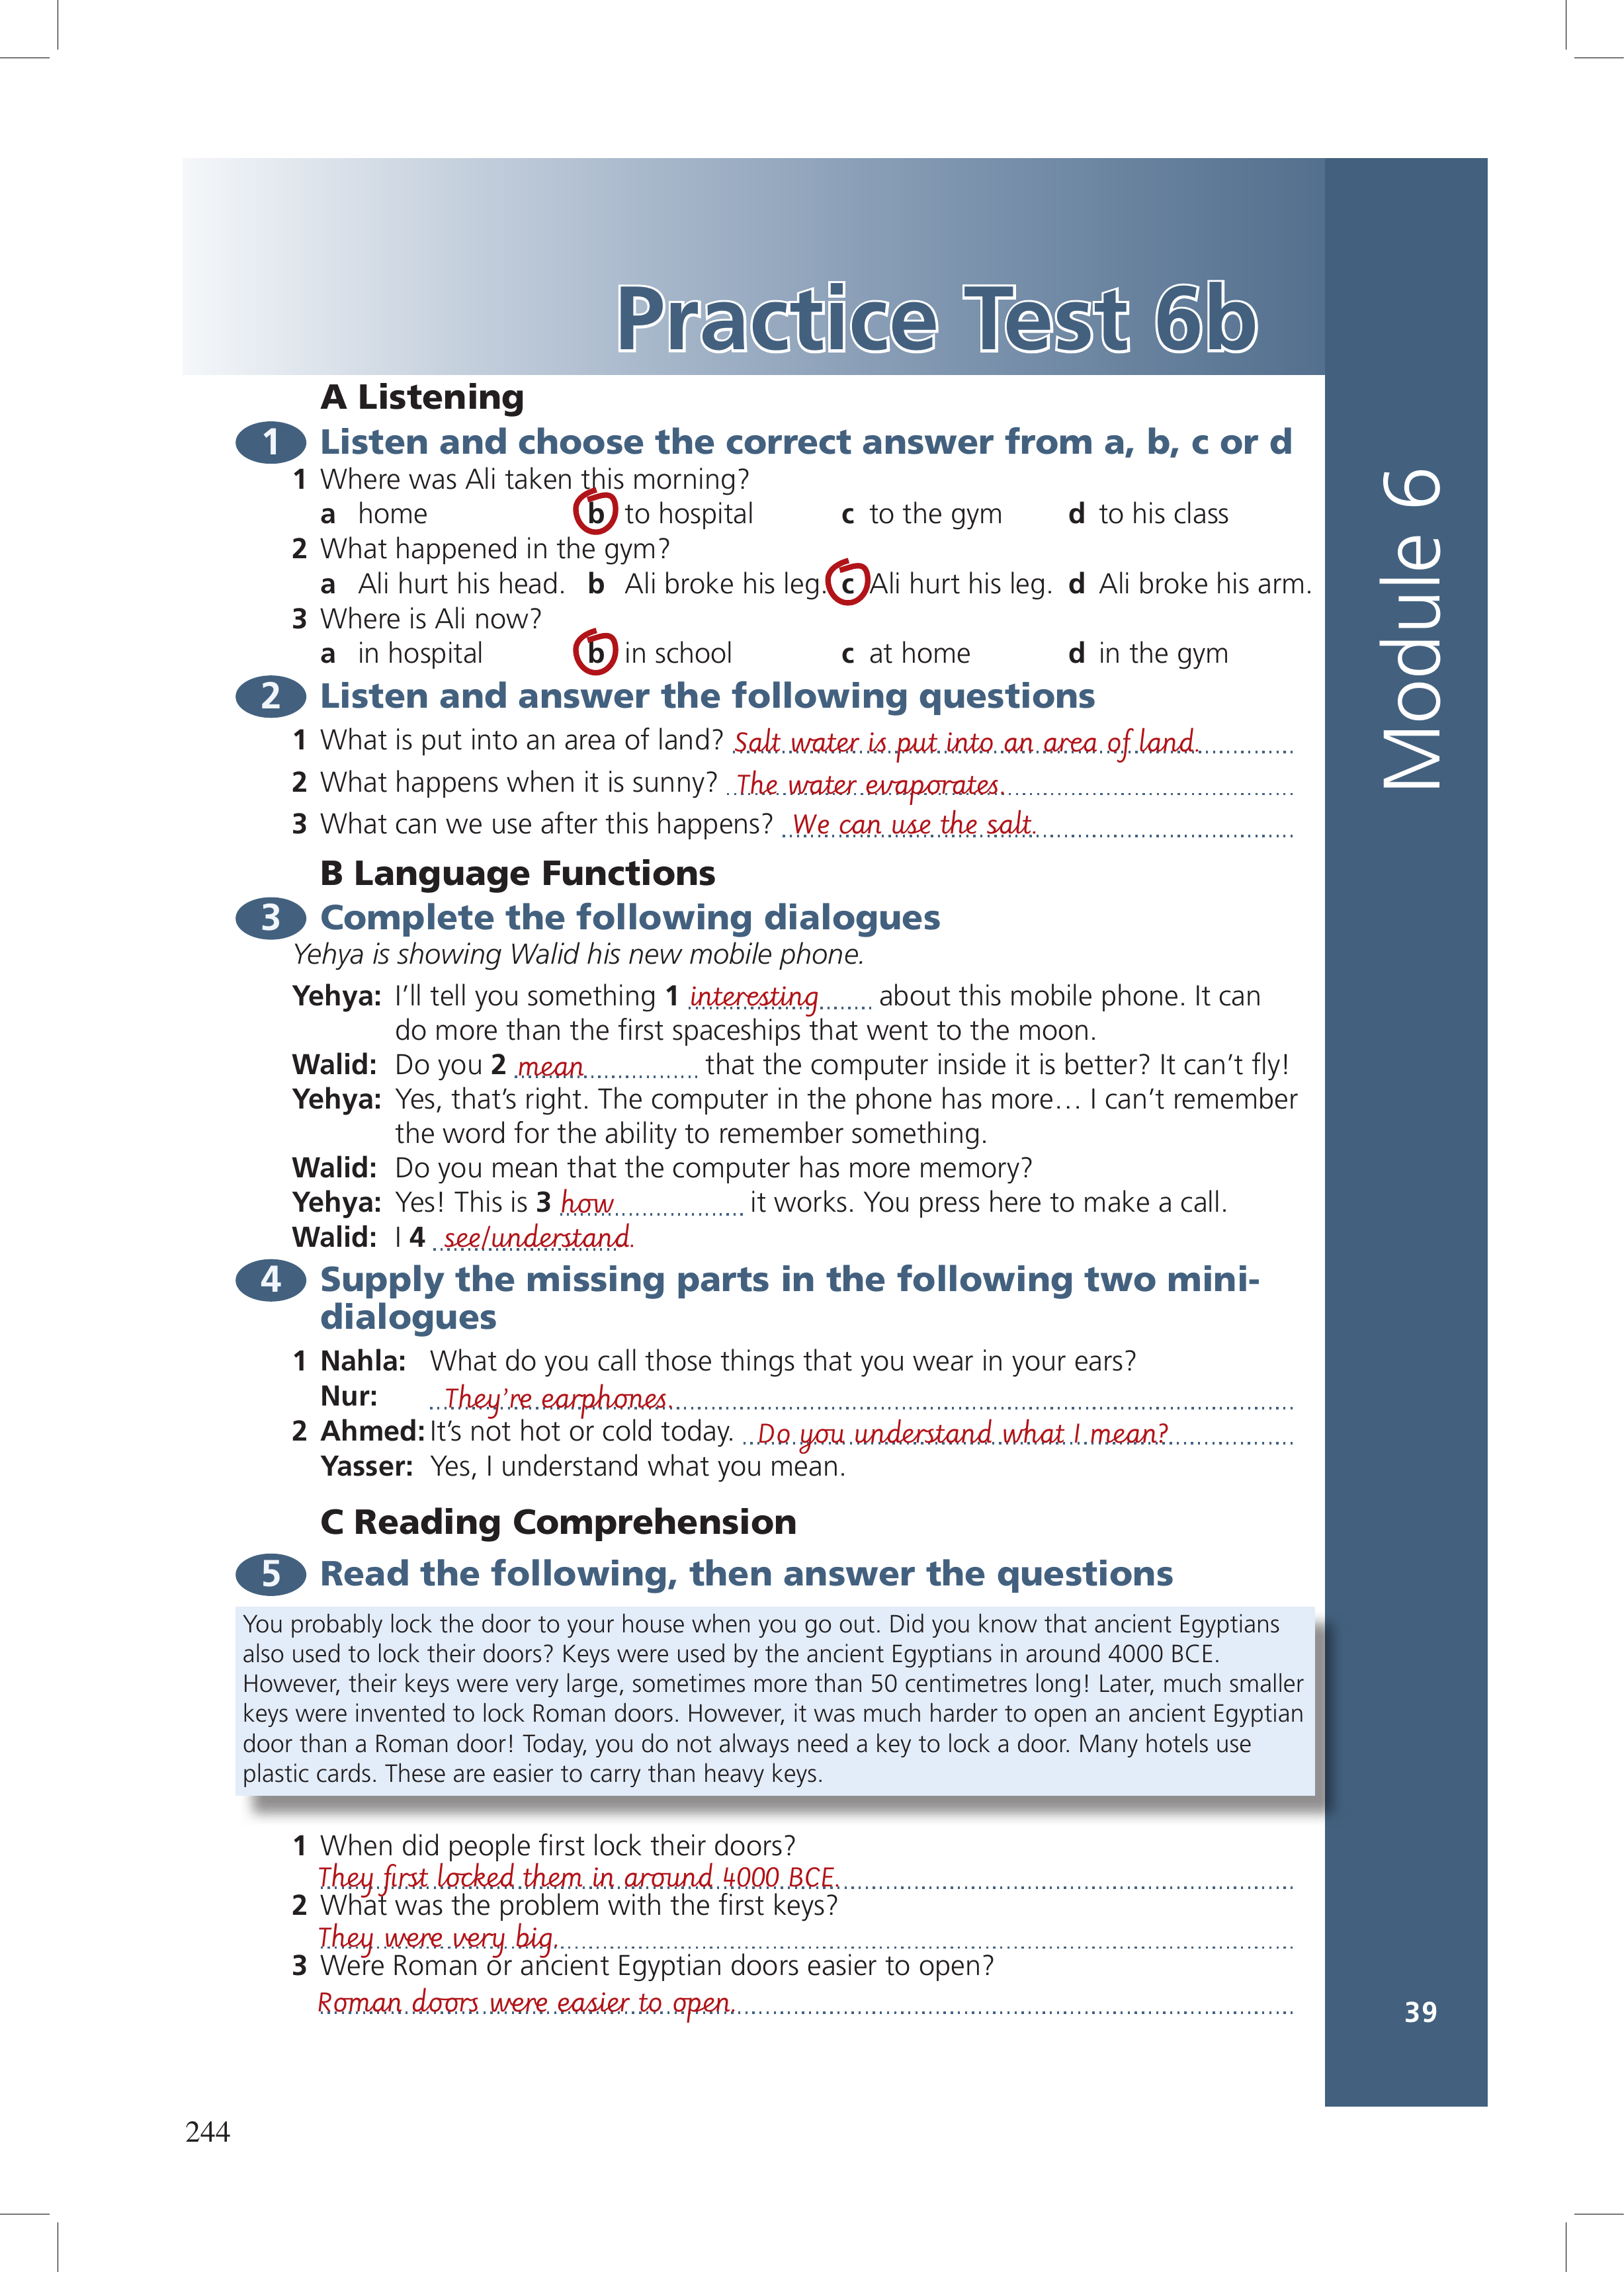 Practice Test 6b
Module 6
A Listening
1 Listen and choose the correct answer from a, b, c or d
1 Where was Ali taken this morning?
a home b to hospital c to the gym d to his class
2 What happened in the gym?
a Ali hurt his head. b Ali broke his leg. c Ali hurt his leg. d Ali broke his arm.
3 Where is Ali now?
a in hospital b in school c at home d in the gym
2 Listen and answer the following questions
1 What is put into an area of land? Salt water is put into an area of land.
2 What happens when it is sunny? The water evaporates.
3 What can we use after this happens? We can use the salt.
B Language Functions
3 Complete the following dialogues
Yehya is showing Walid his new mobile phone.
Yehya: I'll tell you something 1 interesting about this mobile phone. It can
do more than the first spaceships that went to the moon.
Walid: Do you 2 mean that the computer inside it is better? It can't fly!
Yehya: Yes, that's right. The computer in the phone has more… I can't remember
the word for the ability to remember something.
Walid: Do you mean that the computer has more memory?
Yehya: Yes! This is 3 how it works. You press here to make a call.
Walid: I 4 see/understand.
4 Supply the missing parts in the following two mini-
dialogues
1 Nahla: What do you call those things that you wear in your ears?
Nur: They're earphones.
2 Ahmed: It's not hot or cold today. Do you understand what I mean?
Yasser: Yes, I understand what you mean.
C Reading Comprehension
5 Read the following, then answer the questions
You probably lock the door to your house when you go out. Did you know that ancient Egyptians
also used to lock their doors? Keys were used by the ancient Egyptians in around 4000 BCE.
However, their keys were very large, sometimes more than 50 centimetres long! Later, much smaller
keys were invented to lock Roman doors. However, it was much harder to open an ancient Egyptian
door than a Roman door! Today, you do not always need a key to lock a door. Many hotels use
plastic cards. These are easier to carry than heavy keys.
1 When did people first lock their doors?
They first locked them in around 4000 BCE.
2 What was the problem with the first keys?
They were very big.
3 Were Roman or ancient Egyptian doors easier to open?
Roman doors were easier to open.
39
244